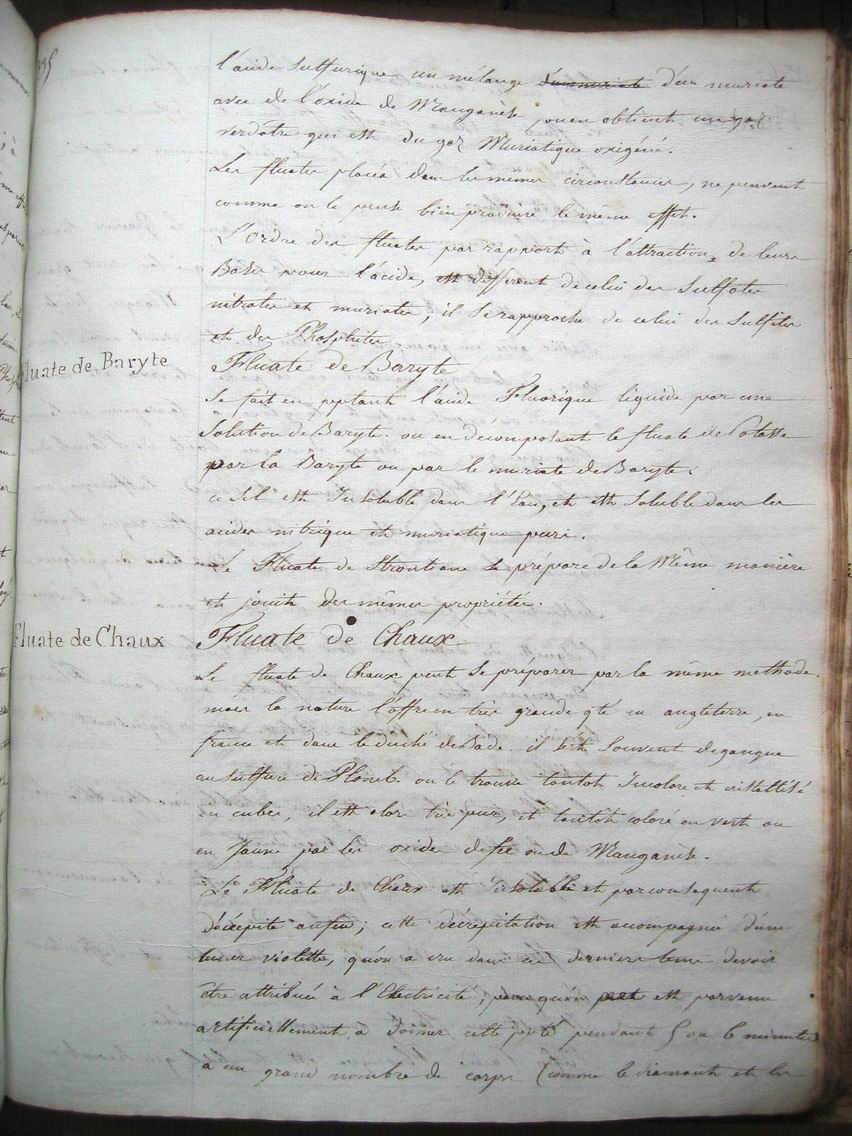 l'acide sulfurique un mélange d'un muriate
avec de l'oxide de Manganèse, on en obtient un gaz
verdâtre qui est du gaz Muriatique oxigéné.
Les fluates placés dans les mêmes circonstances, ne peuvent
comme on le pense bien produire le même effet.
L'Ordre des fluates par rapport à l'attraction de leurs
Bases pour l'acide, est différent de celui des Sulfates
nitrates et muriates, il se rapproche de celui des Sulfites
et des Phosphites
Fluate de Baryte
Fluate de Baryte
Se fait en l'acide Fluorique liquide par une
Solution de Baryte. ou en décomposant le fluate de Potasse
par la Baryte ou par le muriate de Baryte.
ce Sel est Insoluble dans l'Eau, et est Soluble dans les
acides nitrique et muriatique purs.
Le Fluate de Strontiane se prépare de la Même manière
et jouit des mêmes propriétés.
Fluate de Chaux
Fluate de Chaux
Le fluate de Chaux peut se préparer par la même methode.
mais la nature l'offre en très grande qté en angleterre, en
france et dans le duché de Bade. il sert Souvent de gangue
au Sulfure de Plomb. on le trouve tantôt Incolore et cristallisé
en cubes, il est alors très pur, et tantôt coloré en vert ou
en Jaune par les oxides de fer ou de Manganèse.
Le Fluate de Chaux est Insoluble et par consequent
décrépite au feu; cette décrépitation est accompagnée d'une
lueur violette, qu'on a cru dans ces derniers tems devoir
être attribuée à l'Electricité, parcequ'on est parvenu
artificiellement à donner cette ppté pendant 5 ou 6 minutes
à un grand nombre de corps (comme le diamant et les